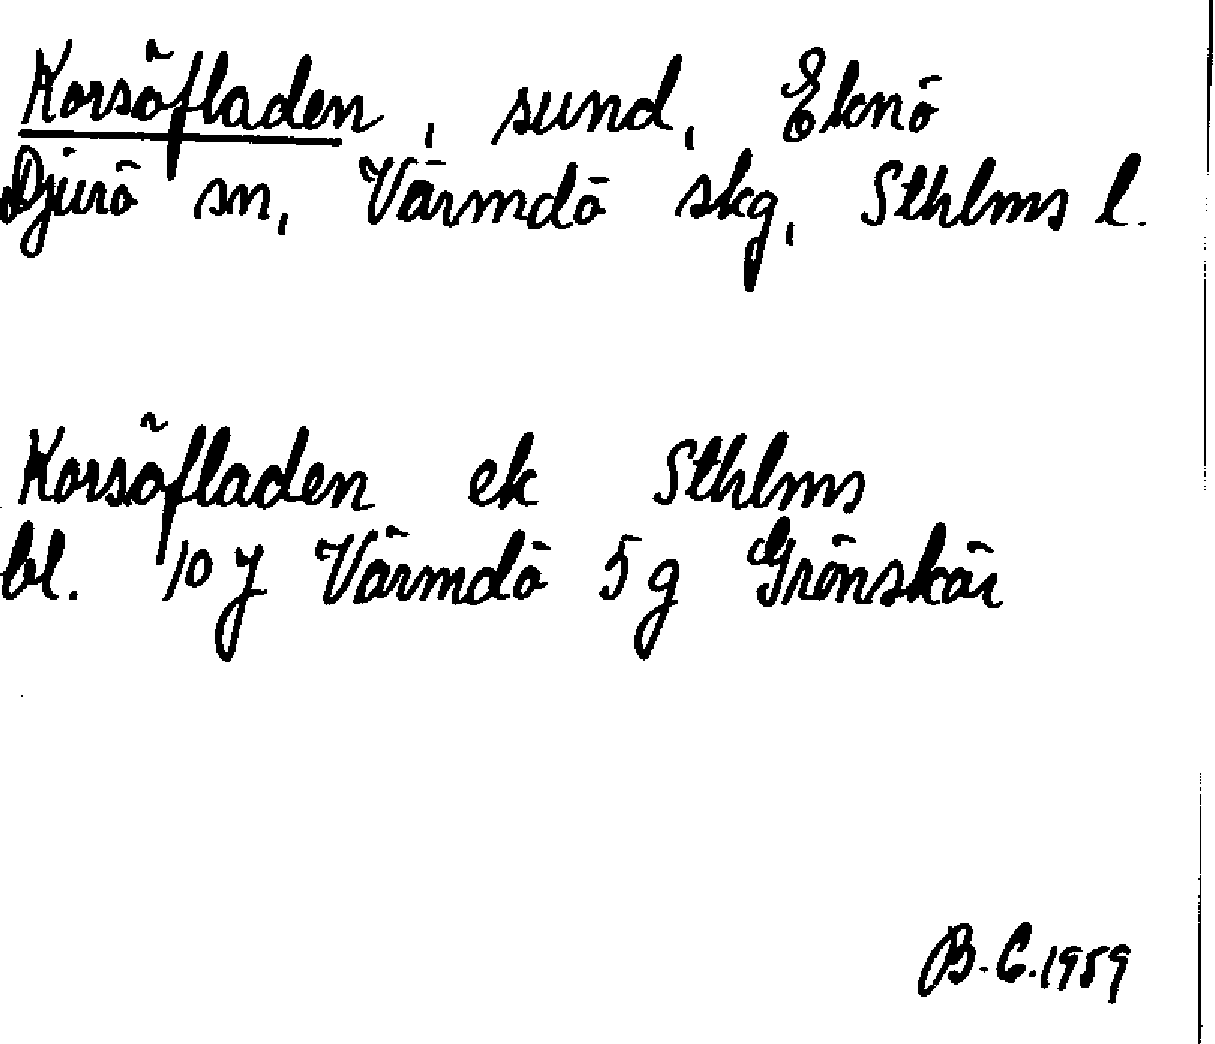 Korsöfladen, sund, Eknö
Djurö sn, Värmdö skg, Sthlms l.
Korsöfladen ek Sthlms
bl. 10 J Värmdö 5 g Grönskär
B.C. 1959